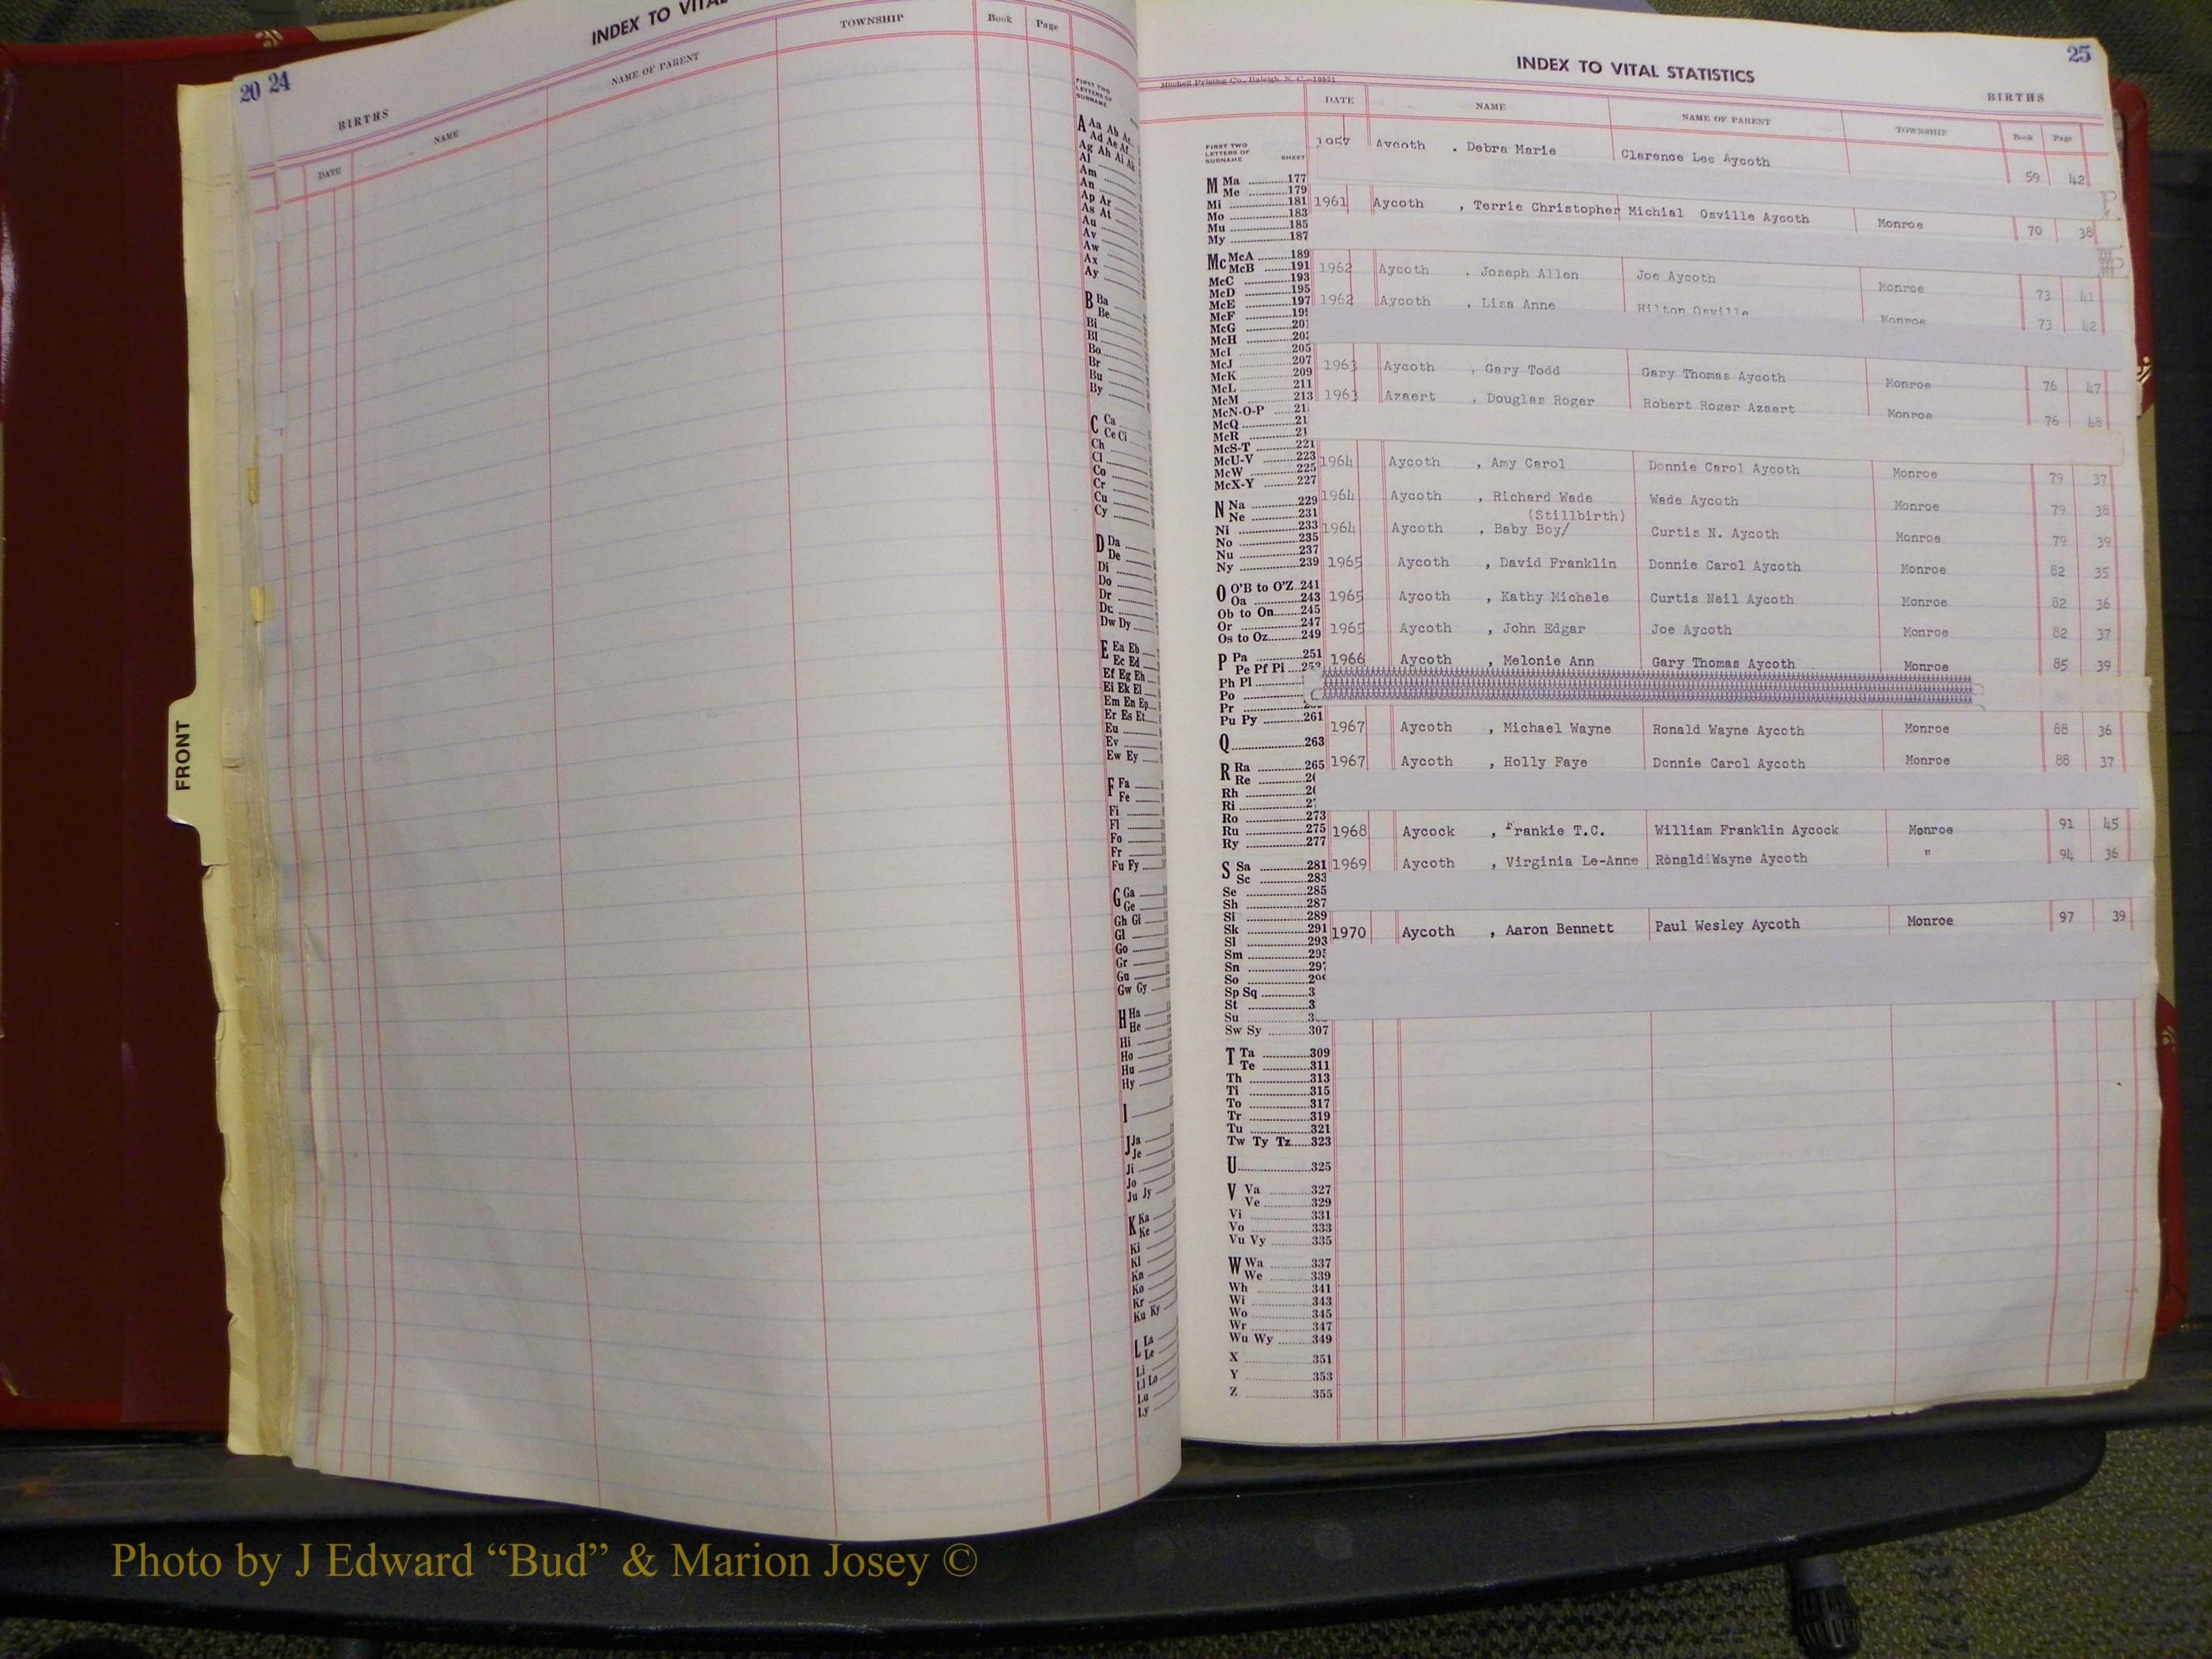 20 24
INDEX TO
BIRTHS
DATE NAME NAME OF PARENT TOWNSHIP Book Page
FIRST TWO
LETTERS OF
SURNAME
A Aa Ab Ac
Ad Ae Af
Ag Ah Ai Ak
Al
Am
An
Ap Ar
As At
Au
Av
Aw
Ax
Ay
B Ba
Be
Bi
Bl
Bo
Br
Bu
By
C Ca
Ce Ci
Ch
Cl
Co
Cr
Cu
Cy
D Da
De
Di
Do
Dr
Du
Dw Dy
E Ea Eb
Ec Ed
Ef Eg Eh
Ei Ek El
Em En Ep
Er Es Et
Eu
Ev
Ew Ey
F Fa
Fe
Fi
Fl
Fo
Fr
Fu Fy
G Ga
Ge
Gh Gi
Gl
Go
Gr
Gu
Gw Gy
H Ha
He
Hi
Ho
Hu
Hy
I
J Ja
Je
Ji
Jo
Ju Jy
K Ka
Ke
Ki
Kl
Kn
Ko
Kr
Ku Ky
L La
Le
Li
Ll Lo
Lu
Ly
FRONT
25
INDEX TO VITAL STATISTICS
Mitchell Printing Co., Raleigh, N. C.—10951
BIRTHS
DATE NAME NAME OF PARENT TOWNSHIP Book Page
FIRST TWO
LETTERS OF
SURNAME SHEET
M Ma 177
Me 179
Mi 181
Mo 183
Mu 185
My 187
Mc McA 189
McB 191
McC 193
McD 195
McE 197
McF
McG
McH
McI 205
McJ 207
McK 209
McL 211
McM 213
McN-O-P
McQ
McR
McS-T 221
McU-V 223
McW 225
McX-Y 227
N Na 229
Ne 231
Ni 233
No 235
Nu 237
Ny 239
O O'B to O'Z 241
Oa 243
Ob to On 245
Or 247
Os to Oz 249
P Pa 251
Pe Pf Pi 253
Ph Pl
Po
Pr
Pu Py 261
Q 263
R Ra 265
Re
Rh
Ri
Ro 273
Ru 275
Ry 277
S Sa 281
Sc 283
Se 285
Sh 287
Si 289
Sk 291
Sl 293
Sm
Sn
So
Sp Sq
St
Su
Sw Sy 307
T Ta 309
Te 311
Th 313
Ti 315
To 317
Tr 319
Tu 321
Tw Ty Tz 323
U 325
V Va 327
Ve 329
Vi 331
Vo 333
Vu Vy 335
W Wa 337
We 339
Wh 341
Wi 343
Wo 345
Wr 347
Wu Wy 349
X 351
Y 353
Z 355
1957 Aycoth , Debra Marie Clarence Lee Aycoth 59 42
1961 Aycoth , Terrie Christopher Michial Osville Aycoth Monroe 70 38
1962 Aycoth , Joseph Allen Joe Aycoth Monroe 73 41
1962 Aycoth , Lisa Anne Hilton Osville Monroe 73 42
1963 Aycoth , Gary Todd Gary Thomas Aycoth Monroe 76 47
1963 Azaert , Douglas Roger Robert Roger Azaert Monroe 76 48
1964 Aycoth , Amy Carol Donnie Carol Aycoth Monroe 79 37
1964 Aycoth , Richard Wade Wade Aycoth Monroe 79 38
(Stillbirth)
1964 Aycoth , Baby Boy/ Curtis N. Aycoth Monroe 79 39
1965 Aycoth , David Franklin Donnie Carol Aycoth Monroe 82 35
1965 Aycoth , Kathy Michele Curtis Neil Aycoth Monroe 82 36
1965 Aycoth , John Edgar Joe Aycoth Monroe 82 37
1966 Aycoth , Melonie Ann Gary Thomas Aycoth Monroe 85 39
1967 Aycoth , Michael Wayne Ronald Wayne Aycoth Monroe 88 36
1967 Aycoth , Holly Faye Donnie Carol Aycoth Monroe 88 37
1968 Aycock , Frankie T.C. William Franklin Aycock Monroe 91 45
1969 Aycoth , Virginia Le-Anne Ronald Wayne Aycoth " 94 36
1970 Aycoth , Aaron Bennett Paul Wesley Aycoth Monroe 97 39
Photo by J Edward “Bud” & Marion Josey ©